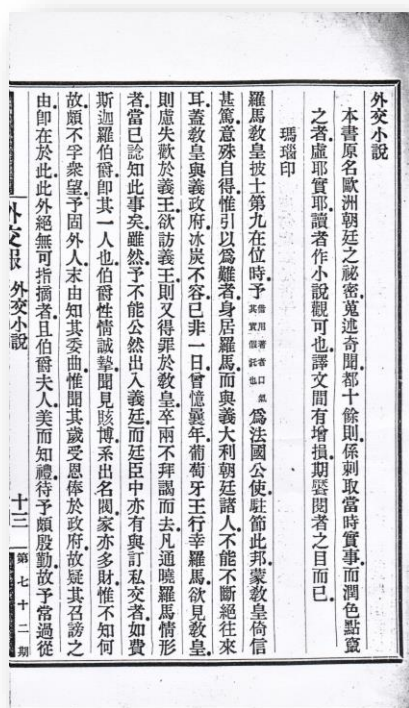 外交小說
本書原名歐洲朝廷之祕密蒐述奇聞都十餘則係刺取當時實事而潤色點竄
之者虛耶實耶讀者作小說觀可也譯文間有增損期饜閱者之目而已
瑪瑙印
羅馬敎皇披士第九在位時予借用著者口氣其實假託也爲法國公使駐節此邦蒙敎皇倚信
甚篤意殊自得惟引以爲難者身居羅馬而與義大利朝廷諸人不能不斷絕往來
耳蓋敎皇與義政府冰炭不容已非一日曾憶曩年葡萄牙王行幸羅馬欲見敎皇
則慮失歡於義王欲訪義王則又得罪於敎皇卒兩不拜謁而去凡通曉羅馬情形
者當已諗知此事矣雖然予不能公然出入義廷而廷臣中亦有與訂私交者如費
斯迦羅伯爵卽其一人也伯爵性情誠摯聞見賅博系出名閥家亦多財惟不知何
故頗不孚衆望予固外人末由知其委曲惟聞其歲受恩俸於政府故疑其召謗之
由卽在於此此外絕無可指摘者且伯爵夫人美而知禮待予頗殷勤故予常過從
外交報 外交小說 十三 第七十二期